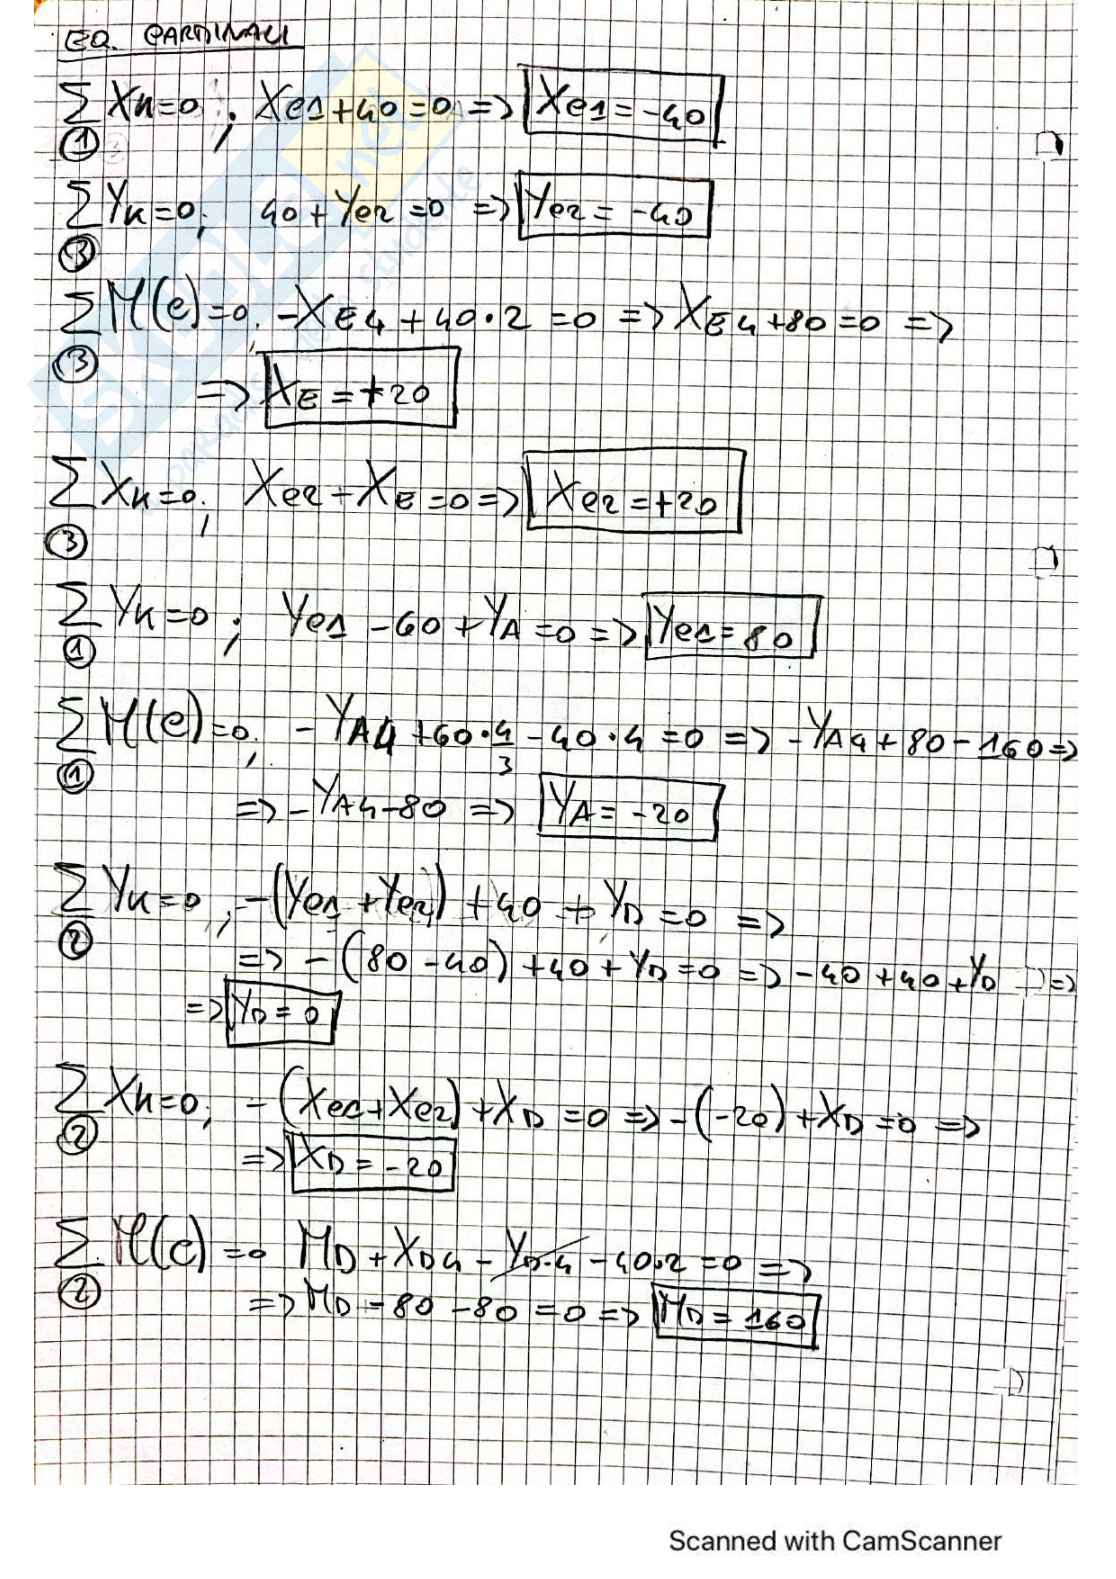 EQ. CARDINALI
∑ Xk=0 ; Xe1+40=0 => Xe1=-40
①
∑ Yk=0; 40+Ye2=0 => Ye2=-40
③
∑ M(e)=0; -XE4+40·2=0 => XE4+80=0 =>
③
=> XE=+20
∑ Xk=0; Xe2-XE=0 => Xe2=+20
③
∑ Yk=0 ; Ye1-60+YA=0 => Ye1=80
①
∑ M(e)=0; -YA4+60·4/3-40·4=0 => -YA4+80-160 =>
①
=> -YA4-80 => YA=-20
∑ Yk=0 ; -(Ye1+Ye2)+40+YD=0 =>
②
=> -(80-40)+40+YD=0 => -40+40+YD =>
=> YD=0
∑ Xk=0; -(Xe1+Xe2)+XD=0 => -(-20)+XD=0 =>
②
=> XD=-20
∑ M(c)=0 MD+XD4-YD·4-40·2=0 =>
②
=> MD-80-80=0 => MD=160
Scanned with CamScanner